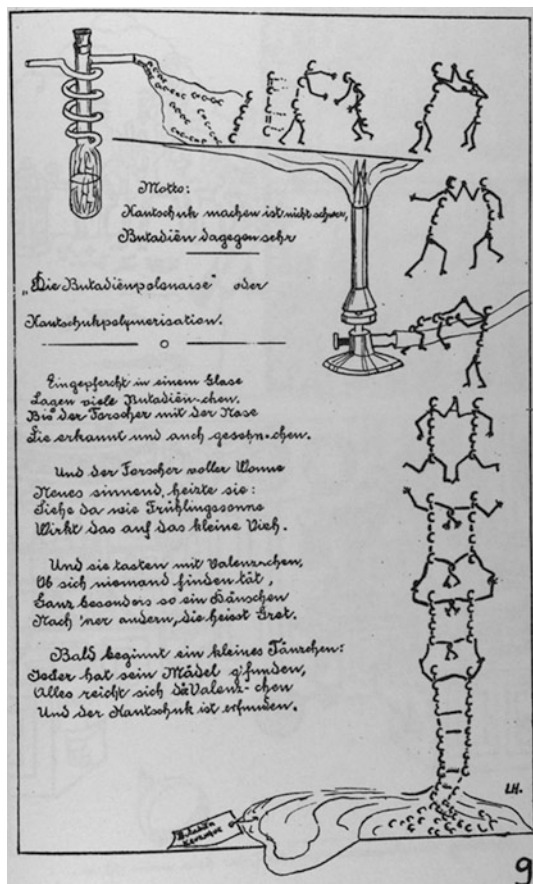 Motto:
Kautschuk machen ist nicht schwer,
Butadiën dagegen sehr
„Die Butadiënpolonaise" oder
Kautschukpolymerisation.
Eingepfercht in einem Glase
Lagen viele Butadiën-chen.
Bis der Forscher mit der Nase
Sie erkannt und auch geseh'n-chen.
Und der Forscher voller Wonne
Neues sinnend, heizte sie:
Siehe da wie Frühlingssonne
Wirkt das auf das kleine Vieh.
Und sie tasten mit Valenz-chen,
Ob sich niemand finden tät,
Ganz besonders so ein Hänschen
Nach 'ner andern, die heisst Gret.
Bald beginnt ein kleines Tänzchen:
Jeder hat sein Mädel g'funden,
Alles reicht sich dö Valenz-chen
Und der Kautschuk ist erfunden.
LH.
Butadiën
Kautschuk
9